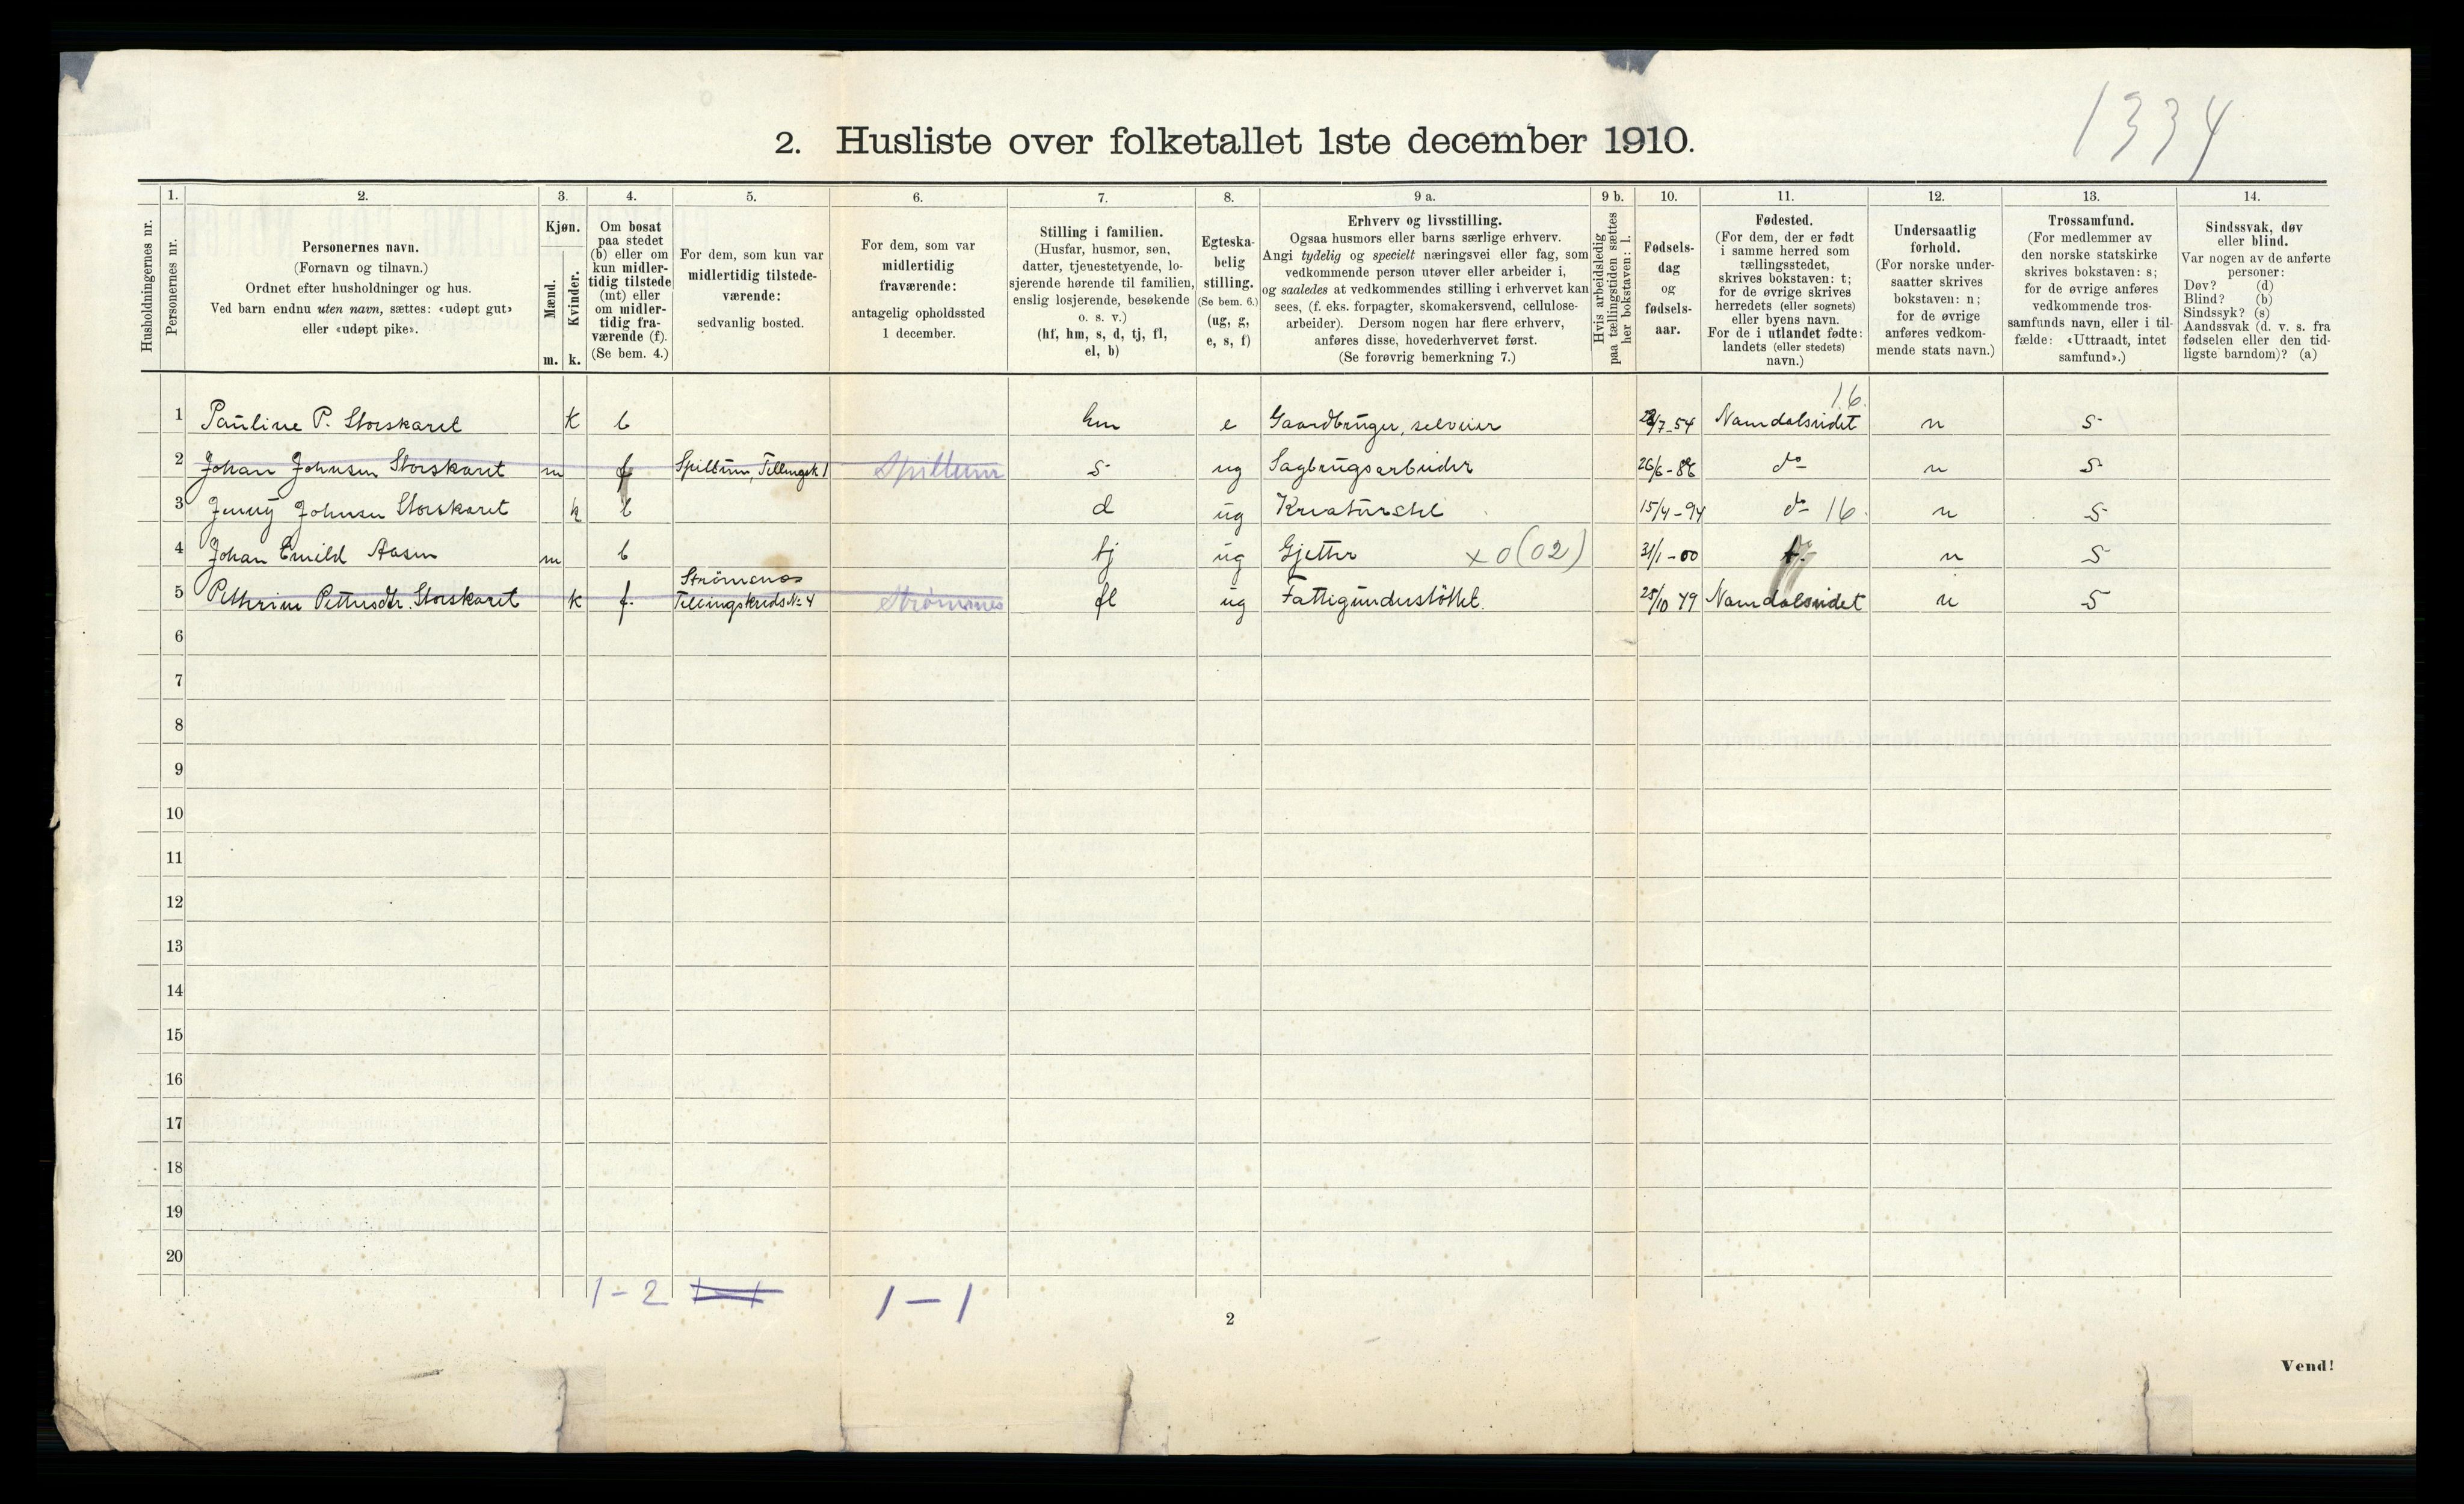 1334
2. Husliste over folketallet 1ste december 1910.
Husholdningernes nr.
1.
Personernes nr.
2.
Personernes navn.
(Fornavn og tilnavn.)
Ordnet efter husholdninger og hus.
Ved barn endnu uten navn, sættes: «udøpt gut»
eller «udøpt pike».
3.
Kjøn.
Mænd.
Kvinder.
m. k.
4.
Om bosat
paa stedet
(b) eller om
kun midler-
tidig tilstede
(mt) eller
om midler-
tidig fra-
værende (f).
(Se bem. 4.)
5.
For dem, som kun var
midlertidig tilstede-
værende:
sedvanlig bosted.
6.
For dem, som var
midlertidig
fraværende:
antagelig opholdssted
1 december.
7.
Stilling i familien.
(Husfar, husmor, søn,
datter, tjenestetyende, lo-
sjerende hørende til familien,
enslig losjerende, besøkende
o. s. v.)
(hf, hm, s, d, tj, fl,
el, b)
8.
Egteska-
belig
stilling.
(Se bem. 6.)
(ug, g,
e, s, f)
9 a.
Erhverv og livsstilling.
Ogsaa husmors eller barns særlige erhverv.
Angi tydelig og specielt næringsvei eller fag, som
vedkommende person utøver eller arbeider i,
og saaledes at vedkommendes stilling i erhvervet kan
sees, (f. eks. forpagter, skomakersvend, cellulose-
arbeider). Dersom nogen har flere erhverv,
anføres disse, hovederhvervet først.
(Se forøvrig bemerkning 7.)
9 b.
Hvis arbeidsledig
paa tællingstiden sættes
her bokstaven: l.
10.
Fødsels-
dag
og
fødsels-
aar.
11.
Fødested.
(For dem, der er født
i samme herred som
tællingsstedet,
skrives bokstaven: t;
for de øvrige skrives
herredets (eller sognets)
eller byens navn.
For de i utlandet fødte:
landets (eller stedets)
navn.)
12.
Undersaatlig
forhold.
(For norske under-
saatter skrives
bokstaven: n;
for de øvrige
anføres vedkom-
mende stats navn.)
13.
Trossamfund.
(For medlemmer av
den norske statskirke
skrives bokstaven: s;
for de øvrige anføres
vedkommende tros-
samfunds navn, eller i til-
fælde: «Uttraadt, intet
samfund».)
14.
Sindssvak, døv
eller blind.
Var nogen av de anførte
personer:
Døv? (d)
Blind? (b)
Sindssyk? (s)
Aandssvak (d. v. s. fra
fødselen eller den tid-
ligste barndom)? (a)
16.
1 Pauline P. Storskaret k b hm e Gaardbruger, selveier /7-54 Namdalseidet n s
2 Johan Johnsen Storskaret m f Spillum, Tellingsk 1 Spillum s ug Sagbrugsarbeider 26/6-86 do n s
3 Jenny Johnsen Storskaret k b d ug Kreaturstel 15/4-94 do 16. n s
4 Johan Emild Aasen m b tj ug Gjetter x0(02) 31/1-00 t. n s
Strömsnes
5 Pethrine Pettersdtr. Storskaret k f. Tellingskreds No 4 Strömsnes fl ug Fattigunderstöttet. 25/10 49 Namdalseidet n s
6
7
8
9
10
11
12
13
14
15
16
17
18
19
20
1-2 1-1
2
Vend!